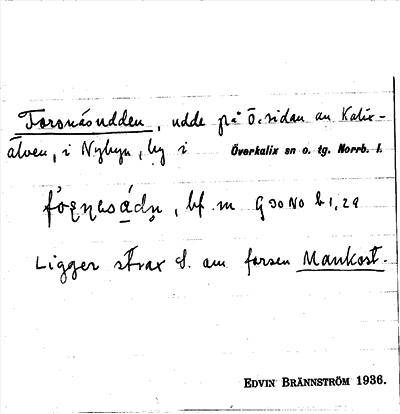 Toronäsudden, udde på Ö. sidan av Kalix-
älven, i Nybyn, by i Överkalix sn o. tg. Norrb. l.
bf. m G 30 NO b 1, 29
Ligger strax S. om forsen Mankost.
EDVIN BRÄNNSTRÖM 1936.